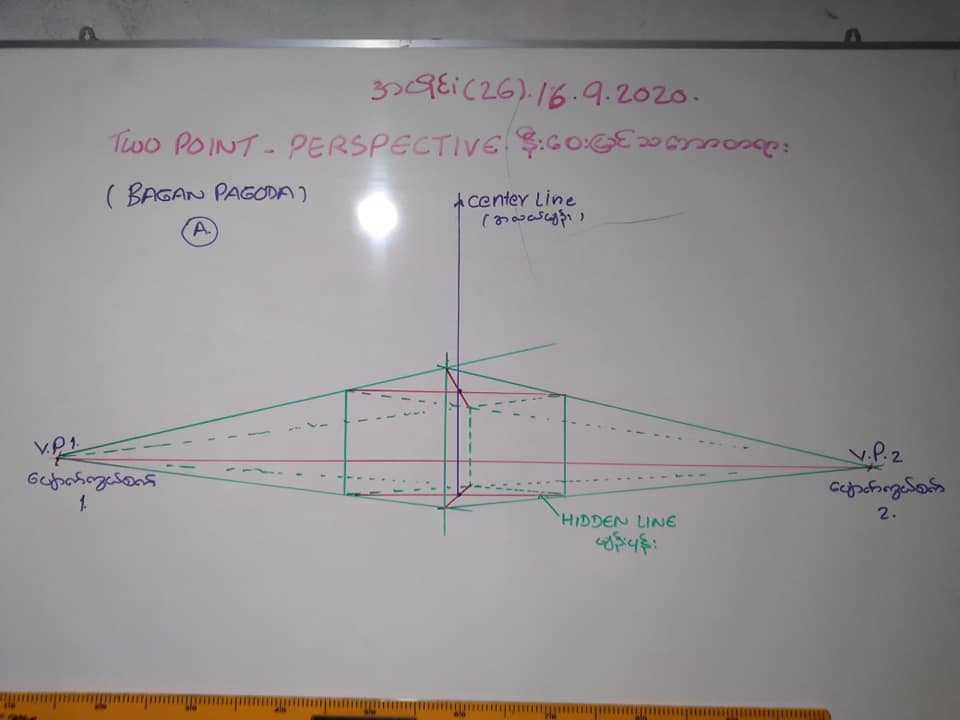 အပိုင်း(26).16.9.2020.
TWO POINT - PERSPECTIVE. နီးဝေးမြင်သဘောတရား
(BAGAN PAGODA)
A.
center Line
(အလယ်မျဉ်း)
V.P 1.
ပျောက်ကွယ်မှတ်
1.
V.P. 2
ပျောက်ကွယ်မှတ်
2.
HIDDEN LINE
မျဉ်းပုန်း